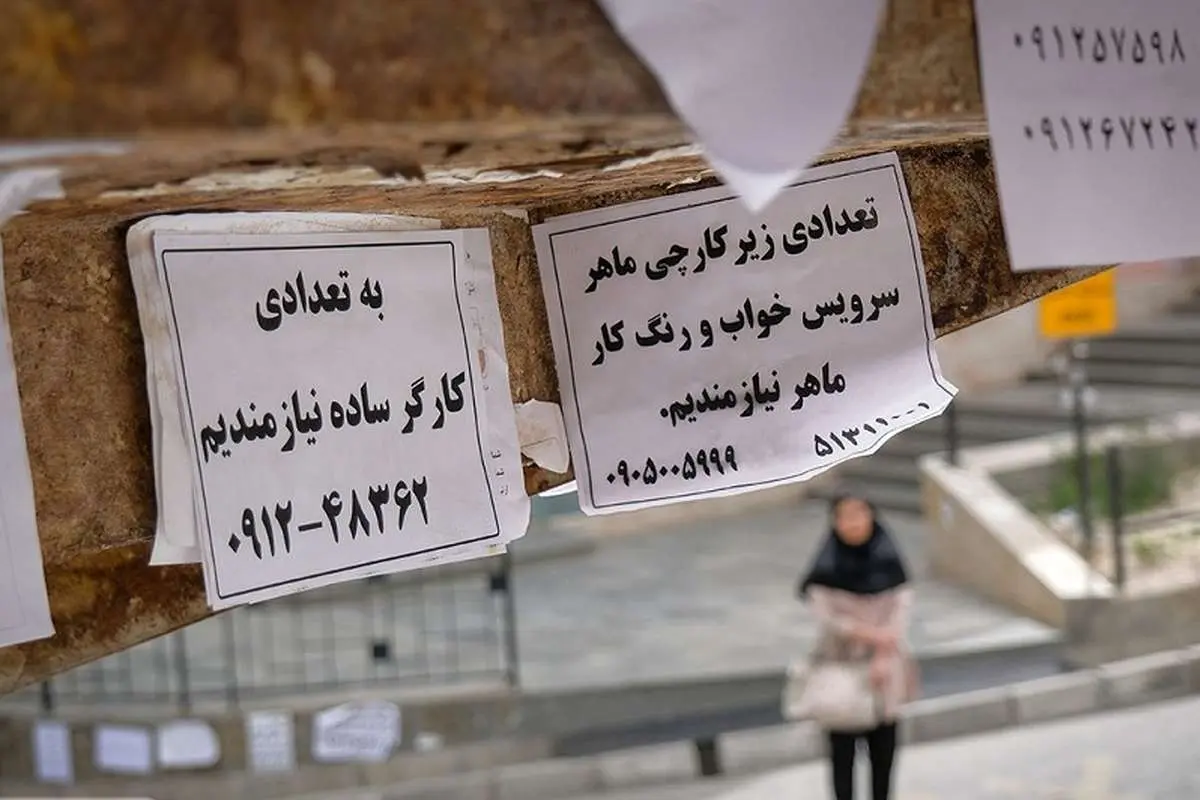 به تعدادی
کارگر ساده نیازمندیم
۰۹۱۲-۴۸۳۶۲
تعدادی زیر کارچی ماهر
سرویس خواب و رنگ کار
ماهر نیازمندیم.
۰۹۰۵۰۰۵۹۹۹
۵۱۳۱۱۰۰۱
۰۹۱۲۵۷۵۹۸
۰۹۱۲۶۷۲۴۲